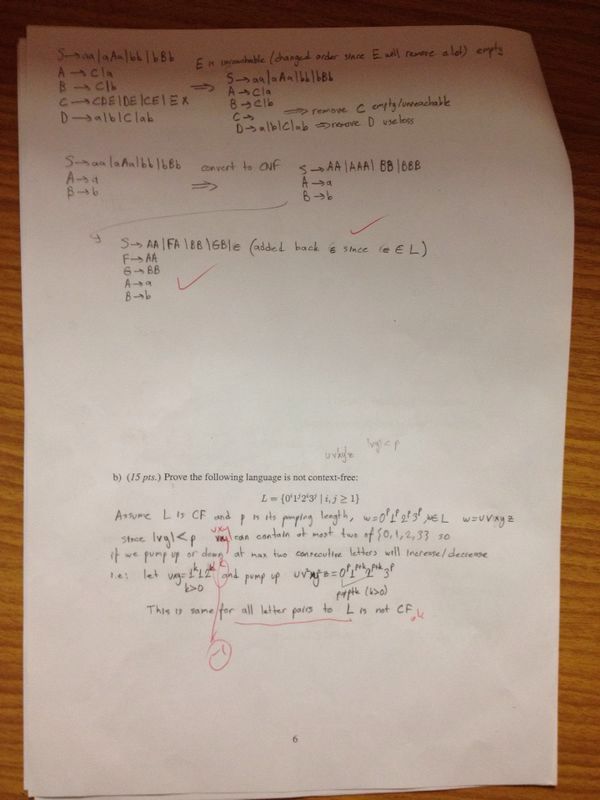 S→aa|aAa|bb|bBb E is unreachable (changed order since E will remove a lot) empty
A→C|a ⇒ S→aa|aAa|bb|bBb
B→C|b A→C|a
C→CDE|DE|CE|E X B→C|b
D→a|b|C|ab C→ ⇒ remove C empty/unreachable
D→a|b|C|ab ⇒ remove D useless
S→aa|aAa|bb|bBb convert to CNF S→AA|AAA|BB|BBB
A→a ⇒ A→a
B→b B→b
S→AA|FA|BB|GB|ε (added back ε since ε∈L)
F→AA
G→BB
A→a
B→b
uvxyz |vy|<p
b) (15 pts.) Prove the following language is not context-free:
L = {0^i 1^j 2^i 3^j | i, j ≥ 1}
Assume L is CF and p is its pumping length, w=0^p 1^p 2^p 3^p, w∈L w=uvxyz
since |vy|<p vxy can contain at most two of {0,1,2,3} so
if we pump up or down at max two consecutive letters will increase/decrease
i.e: let vxy=1^k 2^k and pump up uv²xy²z=0^p 1^p+k 2^p+k 3^p
k>0 p≠p+k (k>0)
This is same for all letter pairs to L is not CF. ok
-1
6